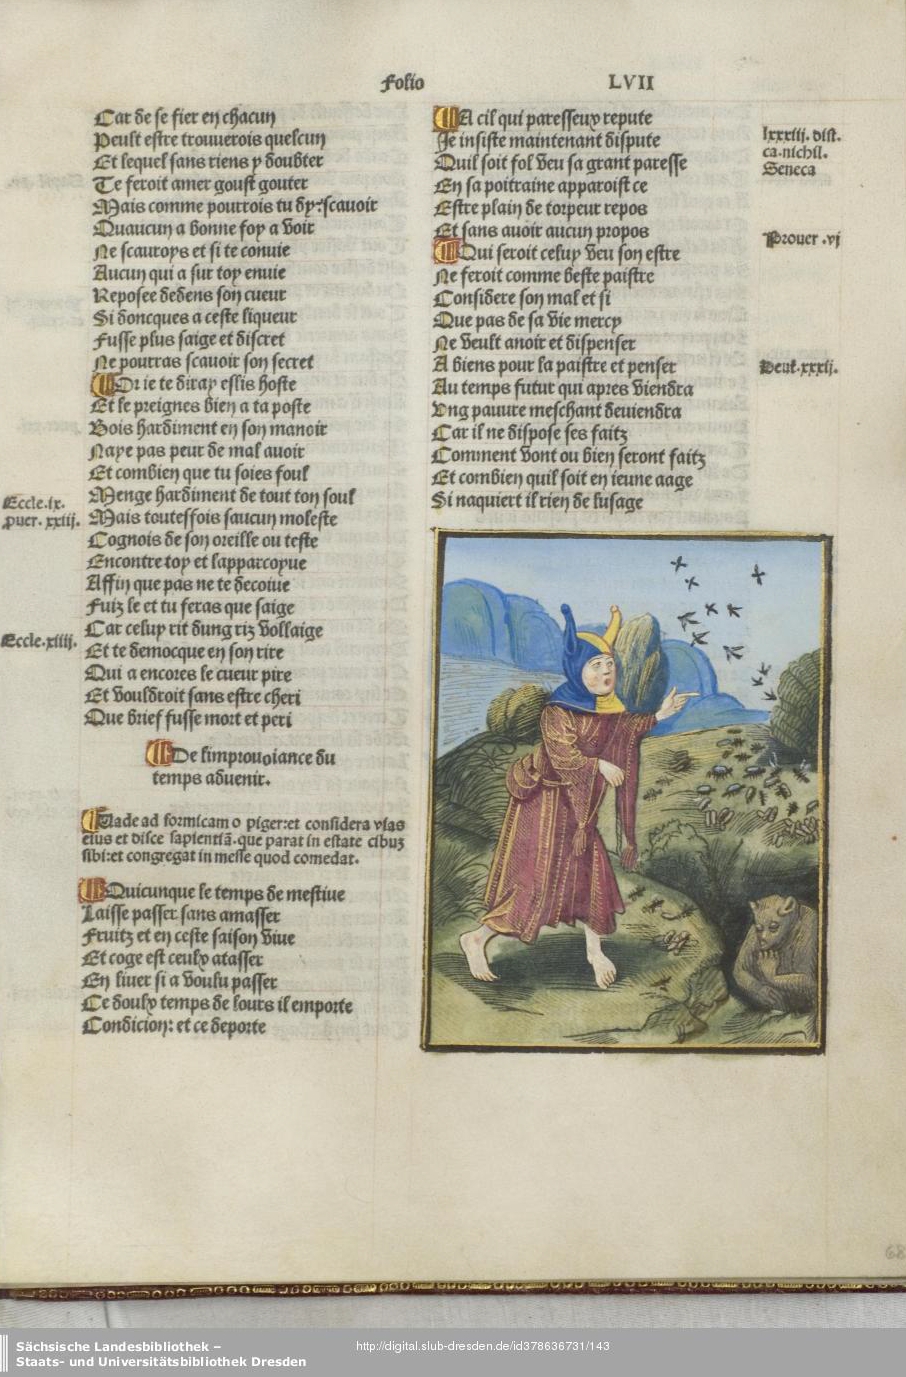 Folio LVII
Car de se fier en chacun
Peult estre trouuerois quelcun
Et lequel sans riens y doubter
Te feroit amer goust gouter
Mais comme pourrois tu dy:scauoir
Quaucun a bonne foy a voir
Ne scauroys et si te conuie
Aucun qui a sur toy enuie
Reposee dedens son cueur
Si doncques a ceste liqueur
Fusse plus saige et discret
Ne pourras scauoir son secret
Or ie te diray essis hoste
Et le preignes bien a ta poste
Bois hardiment en son manoir
Naye pas peur de mal auoir
Et combien que tu soies foul
Menge hardiment de tout ton soul
Eccle.ix.
puer. xxiij.
Mais touteffois saucun moleste
Cognois de son oreille ou teste
Encontre toy et lapparcoyue
Affin que pas ne te decoiue
Fuiz le et tu feras que saige
Eccle.xiiij.
Car celuy rit dung riz vollaige
Et te democque en son rire
Qui a encores le cueur pire
Et vouldroit sans estre cheri
Que brief fusse mort et peri
De limprouoiance du
temps aduenir.
Uade ad formicam o piger:et considera vias
eius et disce sapientiā.que parat in estate cibuȝ
sibi:et congregat in messe quod comedat.
Quicunque le temps de mestiue
Laisse passer sans amasser
Fruitz et en ceste saison viue
Et coge est ceulx atasser
En liuer si a voulu passer
Ce doulx temps de lours il emporte
Condicion: et ce deporte
A cil qui paresseux repute
Je insiste maintenant dispute
Quil soit fol veu sa grant paresse
En sa poitraine apparoist ce
Estre plain de torpeur repos
Et sans auoir aucun propos
lxxxiii. dist.
ca.nichil.
Seneca
Prouer .vj
Qui seroit celuy veu son estre
Ne feroit comme beste paistre
Considere son mal et si
Que pas de sa vie mercy
Ne veult anoir et dispenser
A biens pour la paistre et penser
Deut.xxxij.
Au temps futur qui apres viendra
Vng pauure meschant deuiendra
Car il ne dispose ses faitz
Comment vont ou bien seront faitz
Et combien quil soit en ieune aage
Si naquiert il rien de lusage
68
Sächsische Landesbibliothek –
Staats- und Universitätsbibliothek Dresden
http://digital.slub-dresden.de/id378636731/143